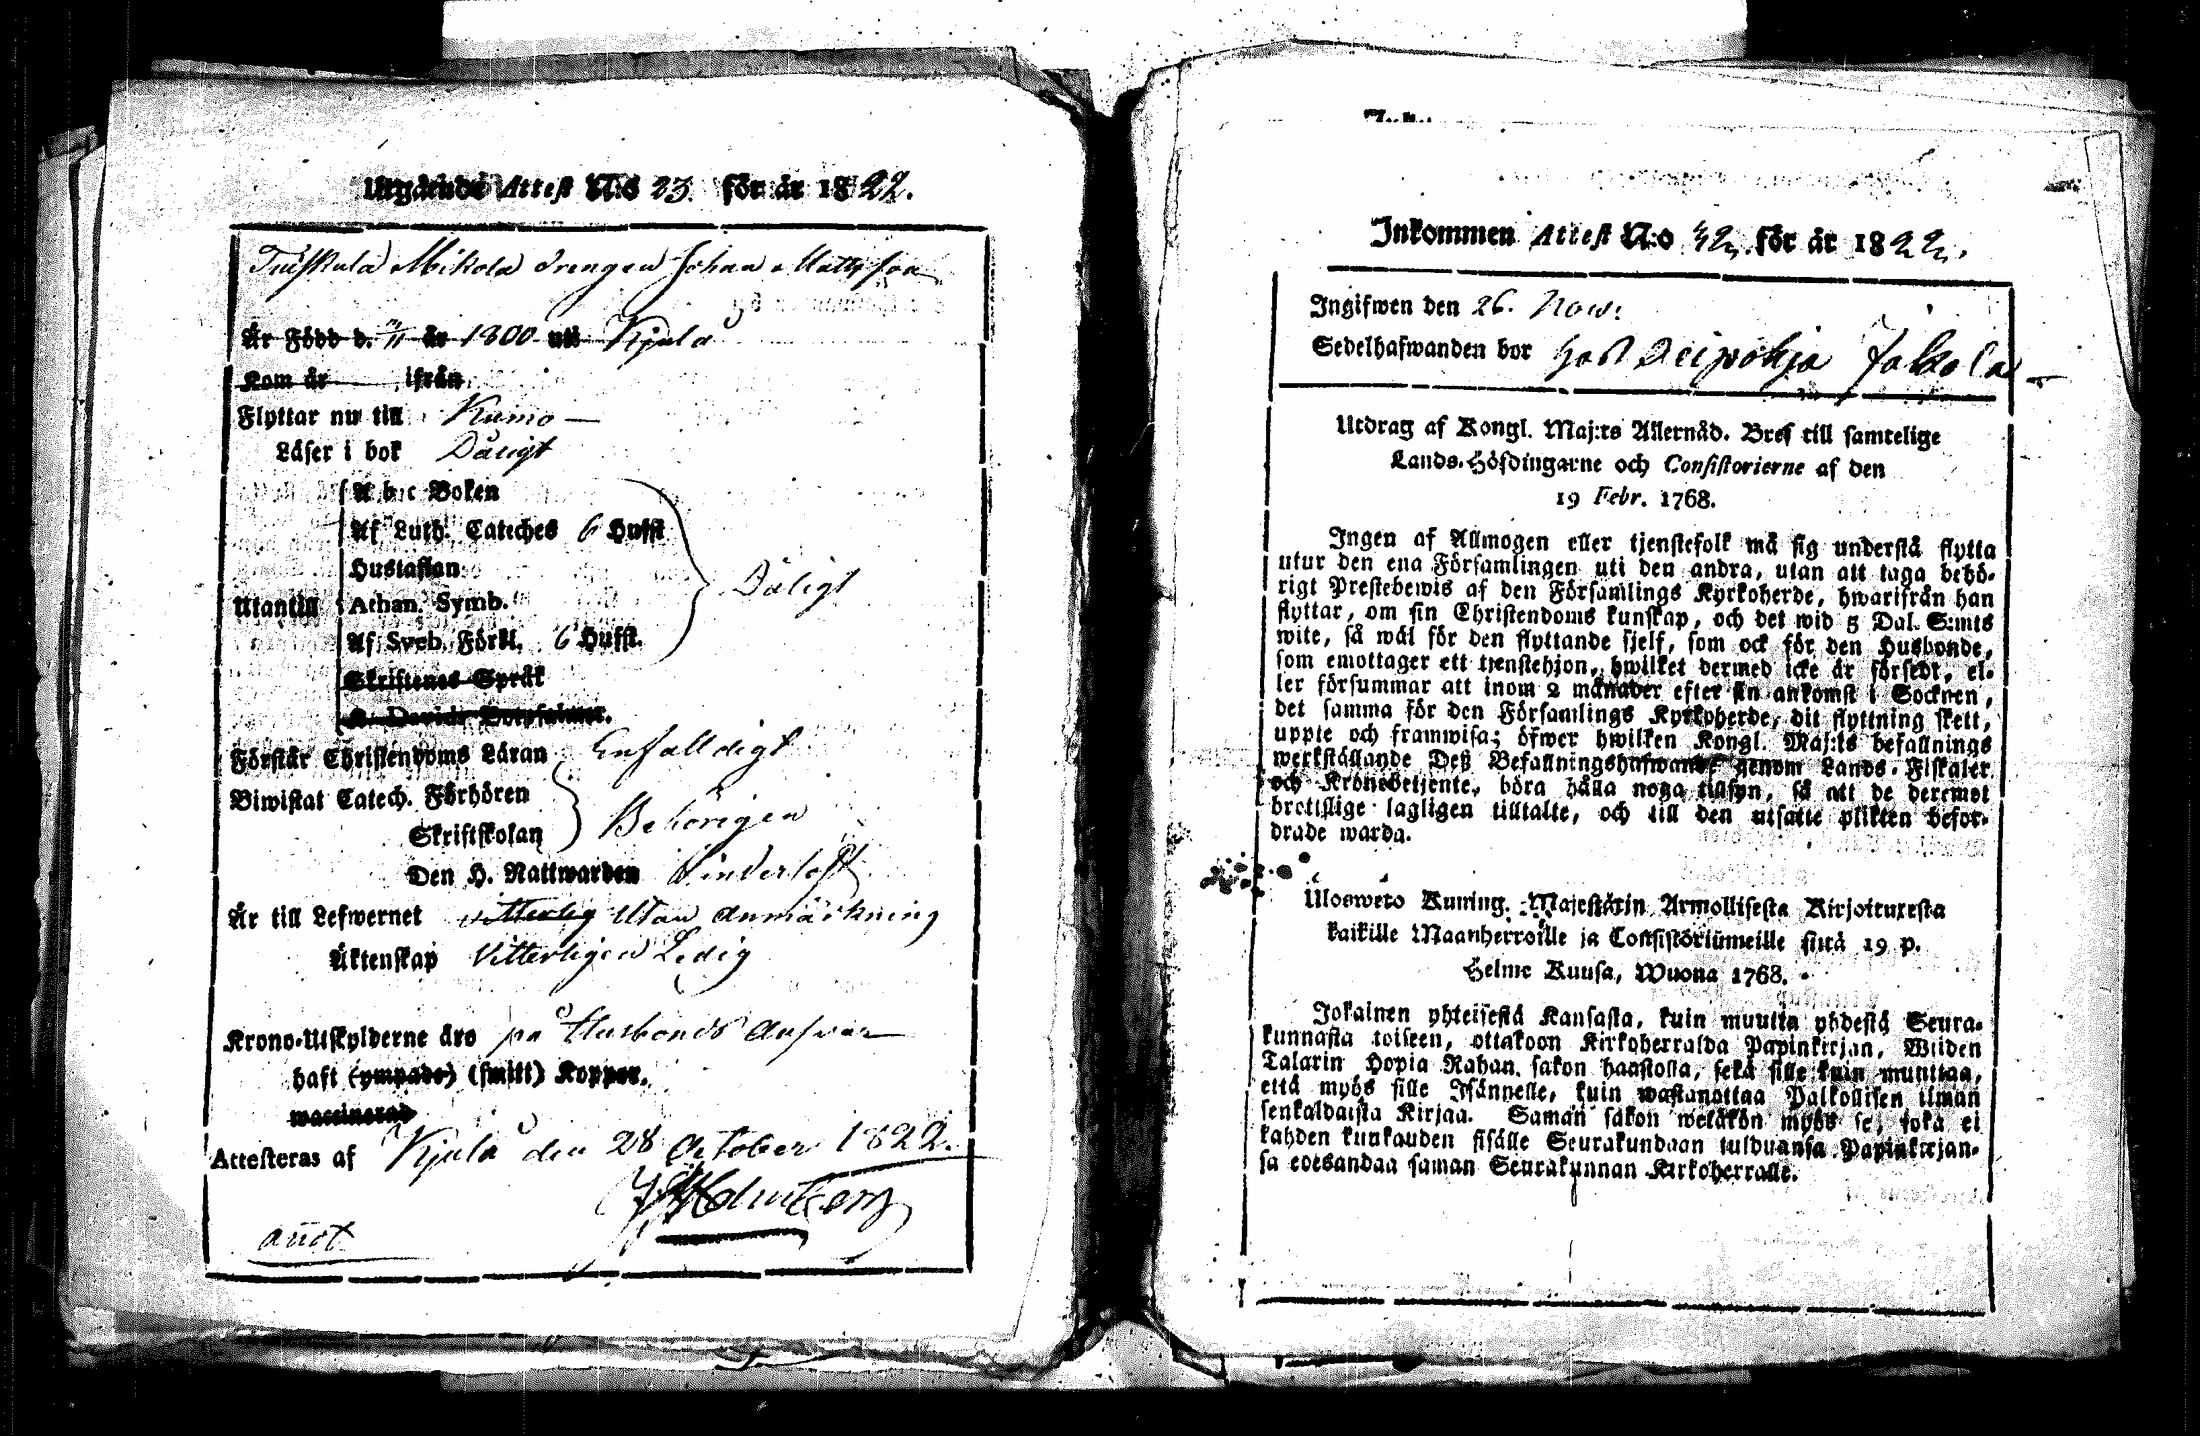 Utgående Attest N:o 23. för år 1822.
Tuiskula Mikola drengen Johan Mattsson
Är Född d. 11/11 år 1800 uti Kjulo
Kom år ifrån
Flyttar nu till Kumo —
Läser i bok Dåligt
A b c Boken
Af Luth. Cateches 6 Hufst
Hustaflan
Utantill Athan. Symb. Dåligt
Af Sveb. Förkl. 6 Hufst.
Skriftenes Språk
K. Davids Botpsalmer.
Förstår Christendoms Läran Enfalldigt
Biwistat Catech. Förhören
Skriftskolan Behörigen
Den H. Nattwarden
Är till Lefwernet witterlig Utan anmärkning
Äktenskap Vitterligen Ledig
Krono-Utskylderne äro på Husbonds Answar
haft (ympade) (smitt) Koppor.
waccinerad
Attesteras af Kjulo den 28 October 1822.
Holmberg
annot.
Inkommen Attest N:o 42. för år 1822.
Ingifwen den 26. Now:
Sedelhafwanden bor hos Deipohja Jakola
Utdrag af Kongl. Maj:ts Allernåd. Bref till samtelige
Lands-Höfdingarne och Consistorierne af den
19 Febr. 1768.
Ingen af Allmogen eller tjenstefolk må sig understå flytta
utur den ena Församlingen uti den andra, utan att taga behö-
rigt Prestebewis af den Församlings Kyrkoherde, hwarifrån han
flyttar, om sin Christendoms kunskap, och det wid 5 Dal. S:mts
wite, så wäl för den flyttande sjelf, som ock för den Husbonde,
som emottager ett tjenstehjon, hwilket dermed icke är försedt, el-
ler försummar att inom 2 månader efter sin ankomst i Socknen,
det samma för den Församlings Kyrkoherde, dit flyttning skett,
uppte och framwisa; öfwer hwilken Kongl. Maj:ts befallnings
werkställande Deß Befallningshafwande genom Lands-Fiskaler
och Kronobetjente, böra hålla noga tillsyn, så att de deremot
brottslige lagligen tilltalte, och till den utsatte plikten befor-
drade warda.
Ulosweto Kuning. Majestätin Armollisesta Kirjoituxesta
kaikille Maanherroille ja Consistoriumeille siitä 19 p.
Helme Kuusa, Wuona 1768.
Jokainen yhteisestä Kansasta, kuin muutta yhdestä Seura-
kunnasta toiseen, ottakoon Kirkoherralda Papinkirjan, Wiiden
Talarin Hopia Rahan sakon haastolla, sekä sille kuin muuttaa,
että myös sille Isännelle, kuin wastanottaa Palkollisen ilman
senkaldaista Kirjaa. Saman sakon wetäkön myös se, joka ei
kahden kuukauden sisälle Seurakundaan tulduansa Papinkirjan-
sa edesandaa saman Seurakunnan Kirkoherralle.